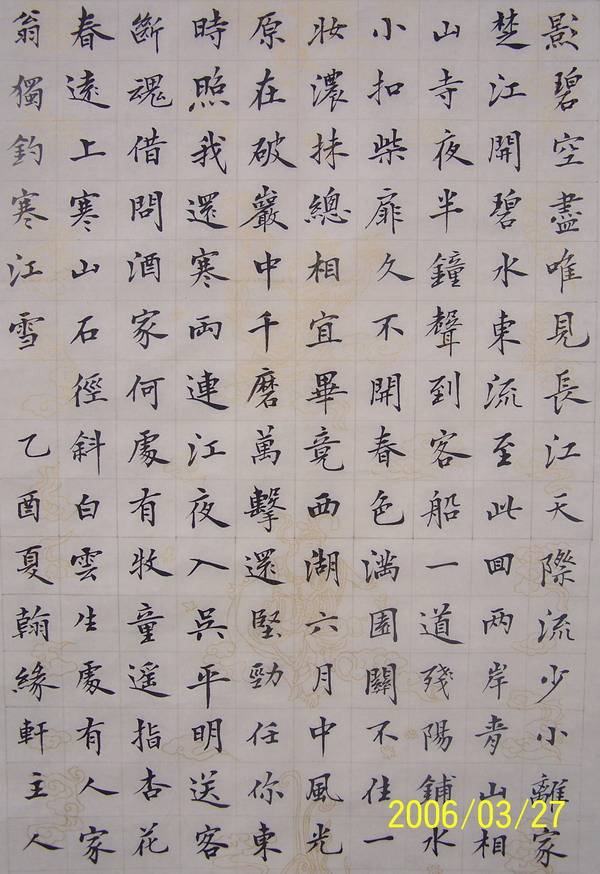 影碧空盡唯見長江天際流少小離家
楚江開碧水東流至此回兩岸青山相
山寺夜半鐘聲到客船一道殘陽鋪水
小扣柴扉久不開春色滿園關不住一
妝濃抹總相宜畢竟西湖六月中風光
原在破巖中千磨萬擊還堅勁任你東
時照我還寒雨連江夜入吳平明送客
斷魂借問酒家何處有牧童遥指杏花
春遠上寒山石徑斜白雲生處有人家
翁獨釣寒江雪 乙酉夏翰緣軒主人
2006/03/27